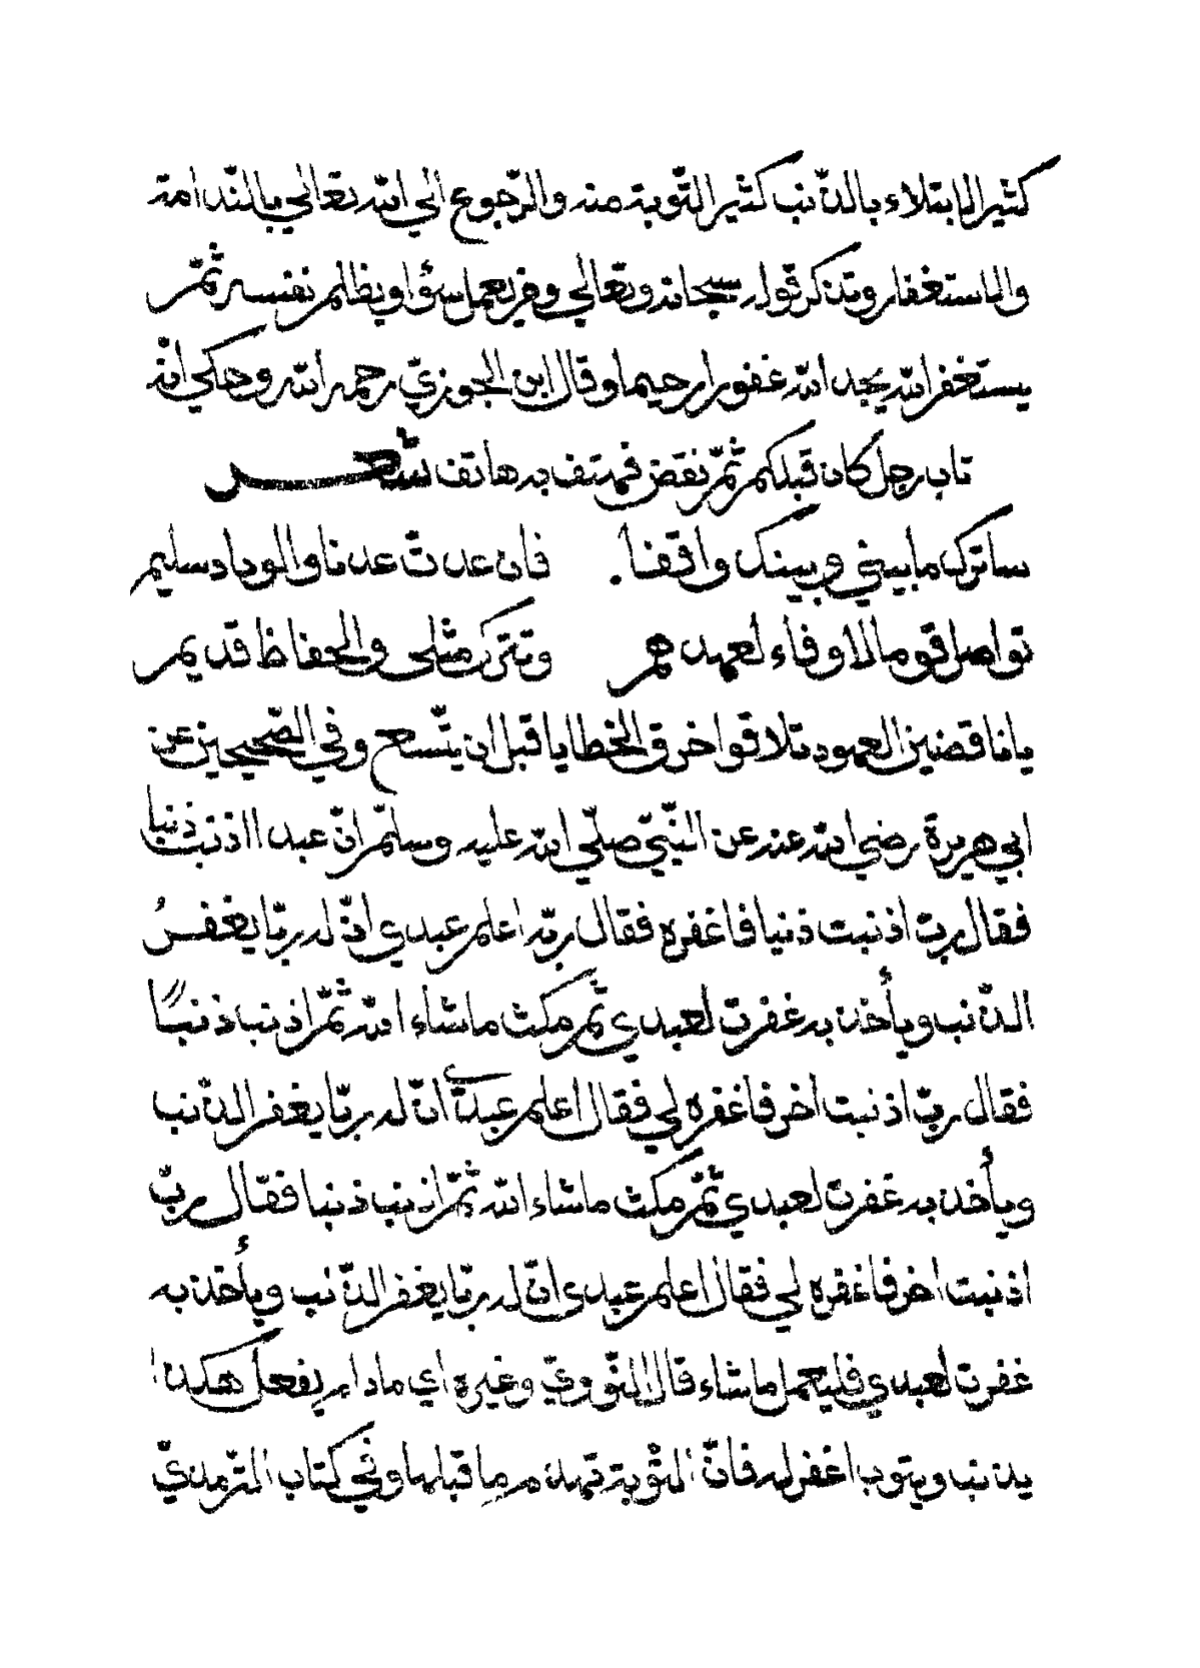 كثير الابتلاء بالذّنب كثير التّوبة منه والرّجوع الي الله تعالي بالنّدامة
والاستغفار وتذكر قوله سبحانه وتعالي ومن يعمل سوٴا او يظلم نفسه ثمّ
يستغفر الله يجد الله غفورا رحيما وقال ابن الجوزيّ رحمه الله وحكي انّه
تاب رجل كان قبلكم ثمّ نقض فهتف به هاتف شعر
ساترك ما بيني وبينك واقفا فان عدت عدنا والوداد سليم
تواصل قوما لا وفاء لعهدهم وتترك مثلي والحفاظ قديم
يا ناقضين العهود تلاقوا خرق الخطايا قبل ان يتّسع وفي الصّحيحين عن
ابي هريرة رضي الله عنه عن النّبيّ صلّي الله عليه وسلّم انّ عبدا اذنب ذنبا
فقال ربّ اذنبت ذنبا فاغفره فقال ربّه اعلم عبدي انّ له ربّا يغفرُ
الذّنب ويأخذ به غفرت لعبدي ثمّ مكث ما شاء الله ثمّ اذنب ذنبًا
فقال ربّ اذنبت اخر فاغفره لي فقال اعلم عبدي انّ له ربّا يغفر الذّنب
ويأخذ به غفرت لعبدي ثمّ مكث ما شاء الله ثمّ اذنب ذنبا فقال ربّ
اذنبت اخر فاغفره لي فقال اعلم عبدي انّ له ربّا يغفر الذّنب ويأخذ به
غفرت لعبدي فليعمل ما شاء قال النّوويّ وغيره اي ما دام يفعل هكذا
يذنب ويتوب اغفر له فانّ التّوبة تهدم ما قبلها وفي كتاب التّرمذيّ